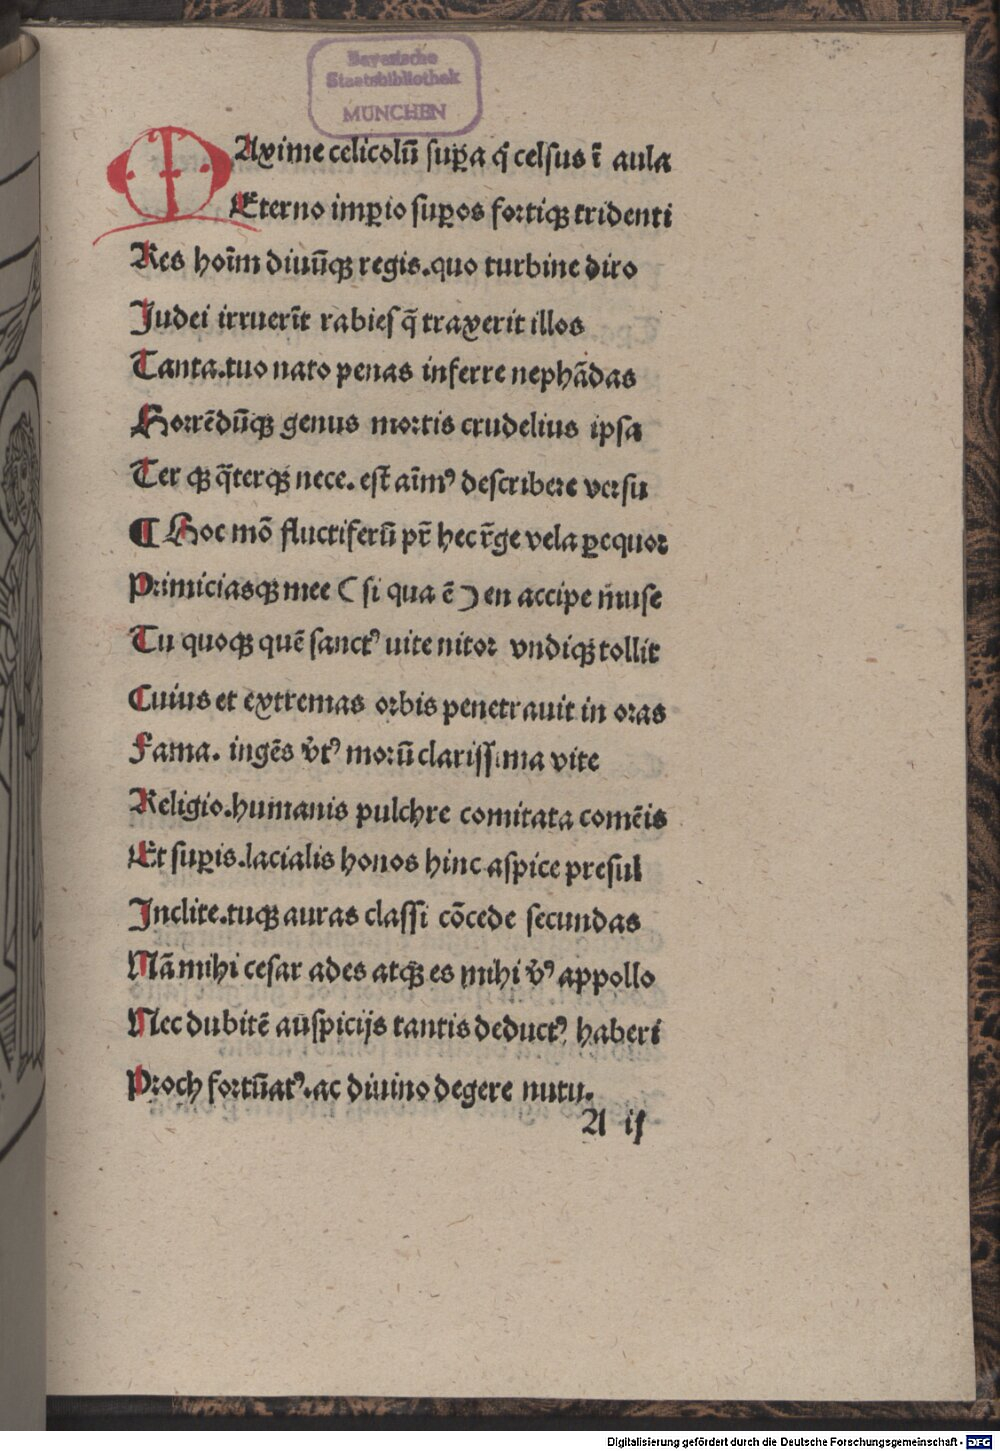 Bayerische
Staatsbibliothek
MÜNCHEN
MAxime celicolū suꝑa q̇ celsus ī aula
Eterno imꝑio suꝑos fortiqꝫ tridenti
Res hoīm diuūqꝫ regis.quo turbine diro
Judei irruerīt rabies q̄ traxerit illos
Tanta.tuo nato penas inferre nephādas
Horrēdūqꝫ genus mortis crudelius ipsa
Ter qꝫ q̄terqꝫ nece. est̄ aīmꝰ describere versu
¶ Hoc mō fluctiferū pr̄ hec r̄ge vela ꝑequor
Primiciasqꝫ mee ( si qua ē ) en accipe m̄use
Tu quoqꝫ quē sanctꝰ uite nitor vndiqꝫ tollit
Cuius et extremas orbis penetrauit in oras
Fama. ingēs v̓tꝰ morū clarissima vite
Religio.humanis pulchre comitata comēis
Et suꝑis.lacialis honos hinc aspice presul
Inclite.tuqꝫ auras classi cōcede secundas
Nā mihi cesar ades atqꝫ es mihi v̓ꝰ appollo
Nec dubitē auspicijs tantis deductꝰ haberi
Proch fortūatꝰ.ac diuino degere nutu.
A ij
Digitalisierung gefördert durch die Deutsche Forschungsgemeinschaft - DFG